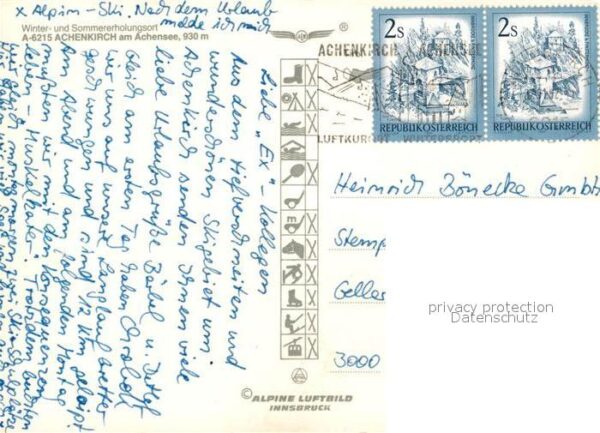 x Alpin-Ski Nach dem Urlaub
melde ich mich
Winter- und Sommererholungsort
A-6215 ACHENKIRCH am Achensee, 930 m
Liebe "Ex"-Kollegen
Aus dem tiefverschneiten und
wunderschönen Skigebiet um
Achenkirch senden Ihnen viele
liebe Urlaubsgrüße Bärbel u. Detlef
Gleich am ersten Tag haben
wir uns auf unsere Langlaufbretter
geschwungen und sind 12 km gelaipt
Am Abend und am folgenden Montag
mußten wir mit den Konsequenzen
leben - Muskelkater! Trotzdem
ACHENKIRCH ACHENSEE
LUFTKURORT WINTERSPORT
2S
REPUBLIK ÖSTERREICH
2S
REPUBLIK ÖSTERREICH
Heinrich Bönecke GmbH
Stemp
Geller
3000
privacy protection
Datenschutz
© ALPINE LUFTBILD
INNSBRUCK